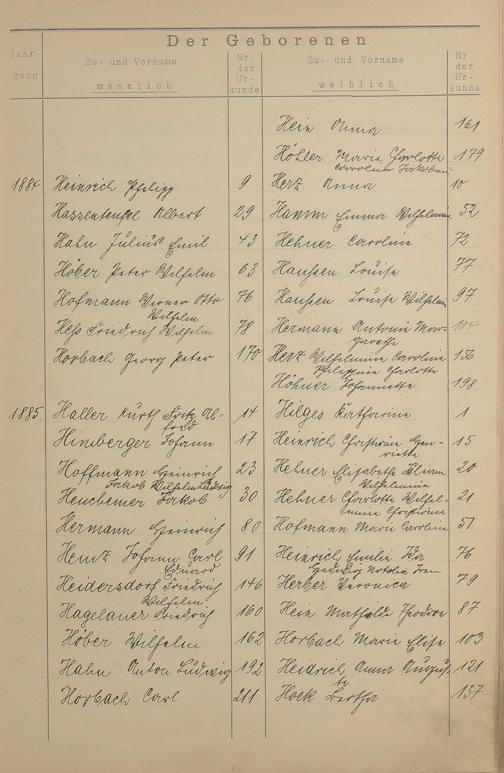 Der Geborenen
Jahr-
gang
Zu- und Vorname
männlich
Nr.
der
Ur-
kunde
Zu- und Vorname
weiblich
Nr.
der
Ur-
kunde
Hein Anna 161
Höhler Maria Charlotte 179
Caroline Jakobine
1884 Heinrich Philipp 9 Herz Anna 10
Hassenteufel Albert 29 Hamm Emma Wilhelmine 52
Hahn Julius Emil 43 Hehner Caroline 72
Höber Peter Wilhelm 63 Hanssen Louise 77
Hofmann Werner Otto 76 Hanssen Louise Wilhelmine 97
Wilhelm
Heß Friedrich Wilhelm 78 Hermann Antonie Mar- 104
garethe
Horbach Georg Peter 170 Herz Wilhelmine Caroline 136
Philippine Charlotte
Höhner Johannette 198
1885 Haller Kurth Fritz Al- 14 Hilges Katharine 1
fred
Himberger Johann 17 Heinrich Christine Hen- 15
riette
Hoffmann Heinrich 23 Hehner Elisabeth 20
Jakob Wilhelm Ludwig Wilhelmine
Heuchemer Jakob 30 Hehner Charlotte Wilhel- 21
mine Christiane
Hermann Heinrich 80 Hofmann Marie Caroline 51
Heinz Johann Carl 91 Heinrich Emilie Ida 76
Eduard Hedwig
Heidersdorf Friedrich 146 Herber Veronica 79
Wilhelm
Hagelauer Friedrich 160 Hein Mathilde Theodore 87
Höber Wilhelm 162 Horbach Marie Elise 103
Hahn Anton Ludwig 192 Heidrich Anna Augus- 121
te
Horbach Carl 211 Hock Bertha 137